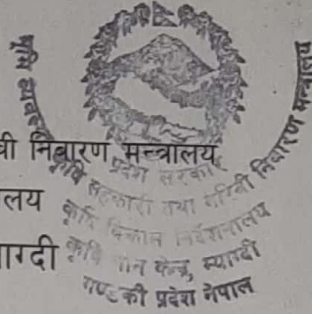 निवारण मन्त्रालय
लय
ग्दी
प्रदेश सरकार
सहकारी तथा गरिबी निवारण मन्त्रालय
कृषि विकास निर्देशनालय
कृषि ज्ञान केन्द्र, म्याग्दी
गण्डकी प्रदेश नेपाल